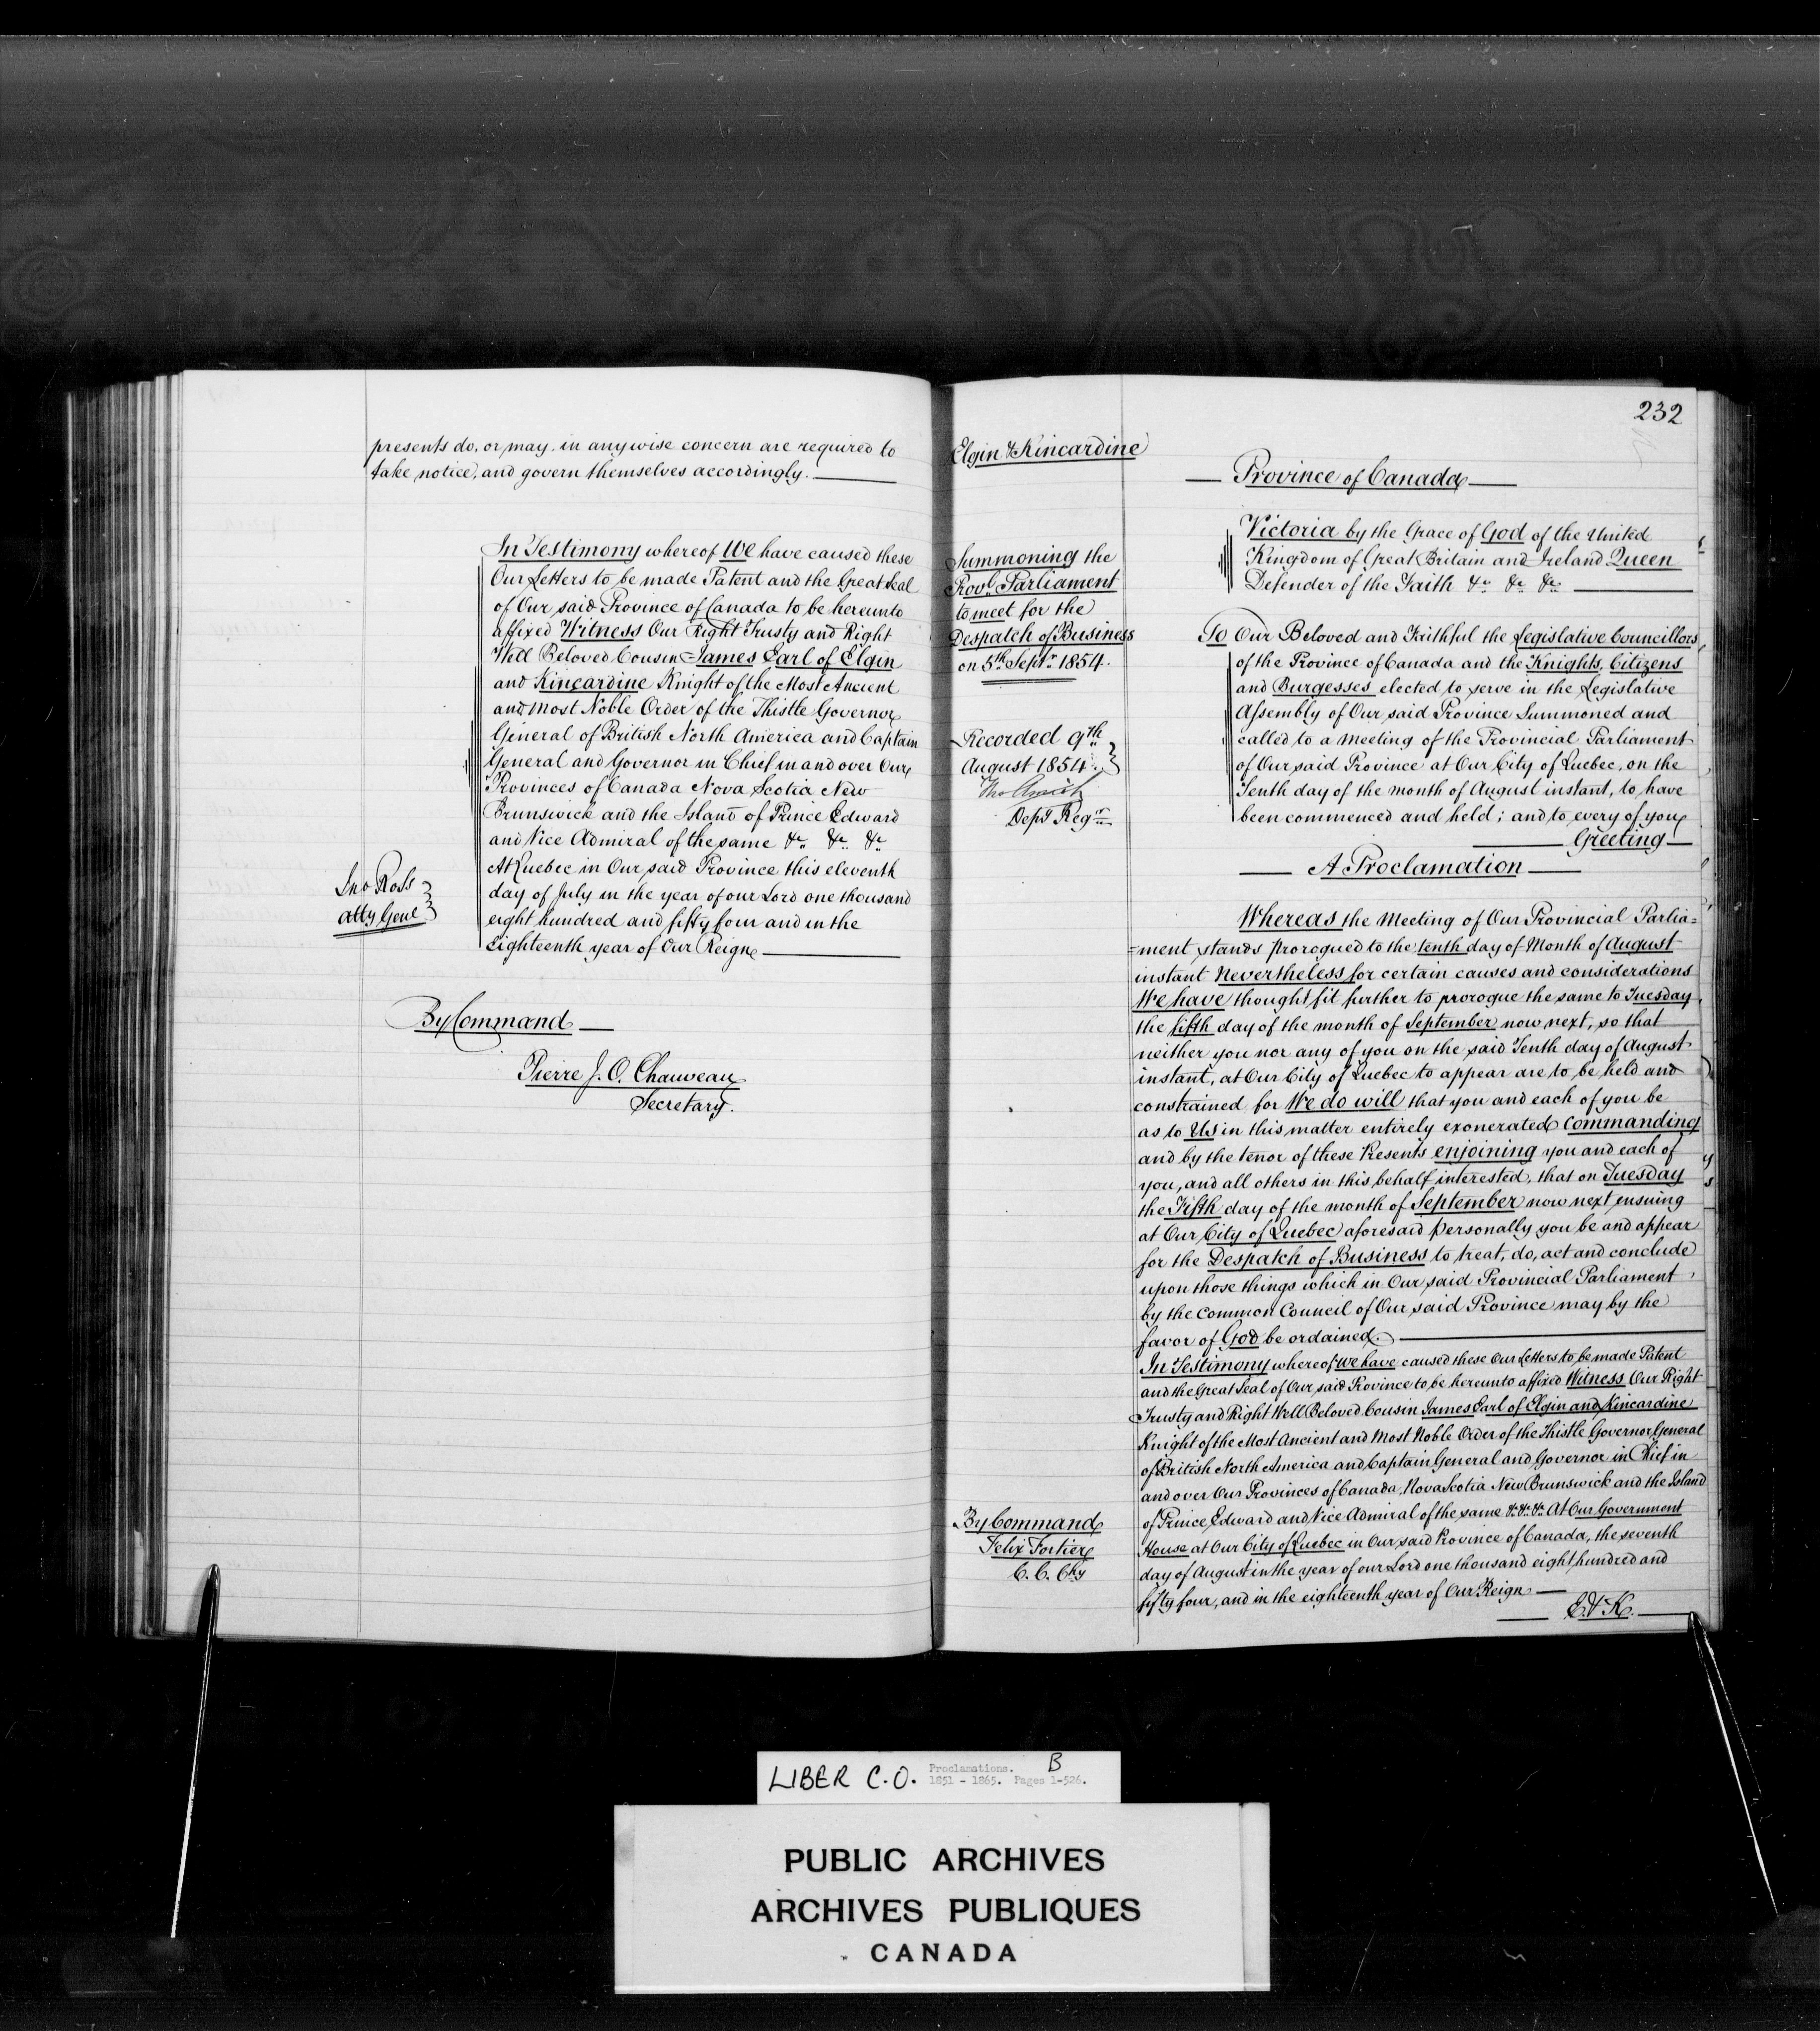 presents do, or may in anywise concern are required to
take notice, and govern themselves accordingly.
In Testimony whereof We have caused these
Our Letters to be made Patent and the Great Seal
of Our said Province of Canada to be hereunto
affixed Witness Our Right Trusty and Right
Well Beloved Cousin James Earl of Elgin
and Kincardine Knight of the Most Ancient
and Most Noble Order of the Thistle Governor
General of British North America and Captain
General and Governor in Chief in and over Our
Provinces of Canada Nova Scotia New
Brunswick and the Island of Prince Edward
and Vice Admiral of the same &c &c &c
At Quebec in Our said Province this eleventh
day of July in the year of our Lord one thousand
eight hundred and fifty four and in the
Eighteenth year of Our Reign
Jno Ross
Atty Genl
By Command
Pierre J. O. Chauveau
Secretary.
232
Elgin & Kincardine
Summoning the
Provl Parliament
to meet for the
Despatch of Business
on 5th Septr 1854.
Recorded 9th
August 1854.
Depy Regr
Province of Canada
Victoria by the Grace of God of the United
Kingdom of Great Britain and Ireland Queen
Defender of the Faith &c &c &c
To Our Beloved and Faithful the Legislative Councillors
of the Province of Canada and the Knights, Citizens
and Burgesses elected to serve in the Legislative
Assembly of Our said Province Summoned and
called to a Meeting of the Provincial Parliament
of Our said Province at Our City of Quebec, on the
Tenth day of the month of August instant, to have
been commenced and held; and to every of you
Greeting
A Proclamation
Whereas the Meeting of Our Provincial Parlia=
=ment stands prorogued to the tenth day of Month of August
instant Nevertheless for certain causes and considerations
We have thought fit further to prorogue the same to Tuesday,
the fifth day of the month of September now next, so that
neither you nor any of you on the said Tenth day of August
instant, at Our City of Quebec to appear are to be held and
constrained for We do will that you and each of you be
as to Us in this matter entirely exonerated Commanding
and by the tenor of these Presents enjoining you and each of
you, and all others in this behalf interested, that on Tuesday
the Fifth day of the month of September now next ensuing
at Our City of Quebec aforesaid personally you be and appear
for the Despatch of Business to treat, do, act and conclude
upon those things which in Our said Provincial Parliament
by the Common Council of Our said Province may by the
favor of God be ordained.
In Testimony whereof We have caused these Our Letters to be made Patent
and the Great Seal of Our said Province to be hereunto affixed Witness Our Right
Trusty and Right Well Beloved Cousin James Earl of Elgin and Kincardine
Knight of the Most Ancient and Most Noble Order of the Thistle Governor General
of British North America and Captain General and Governor in Chief in
and over Our Provinces of Canada, Nova Scotia New Brunswick and the Island
of Prince Edward and Vice Admiral of the same &c &c &c At Our Government
House at Our City of Quebec in Our said Province of Canada, the seventh
day of August in the year of our Lord one thousand eight hundred and
fifty four, and in the eighteenth year of Our Reign
E. & K.
By Command
Felix Fortier
C. C. Chy
LIBER C.O. Proclamations. B
1851 - 1865. Pages 1-526.
PUBLIC ARCHIVES
ARCHIVES PUBLIQUES
CANADA